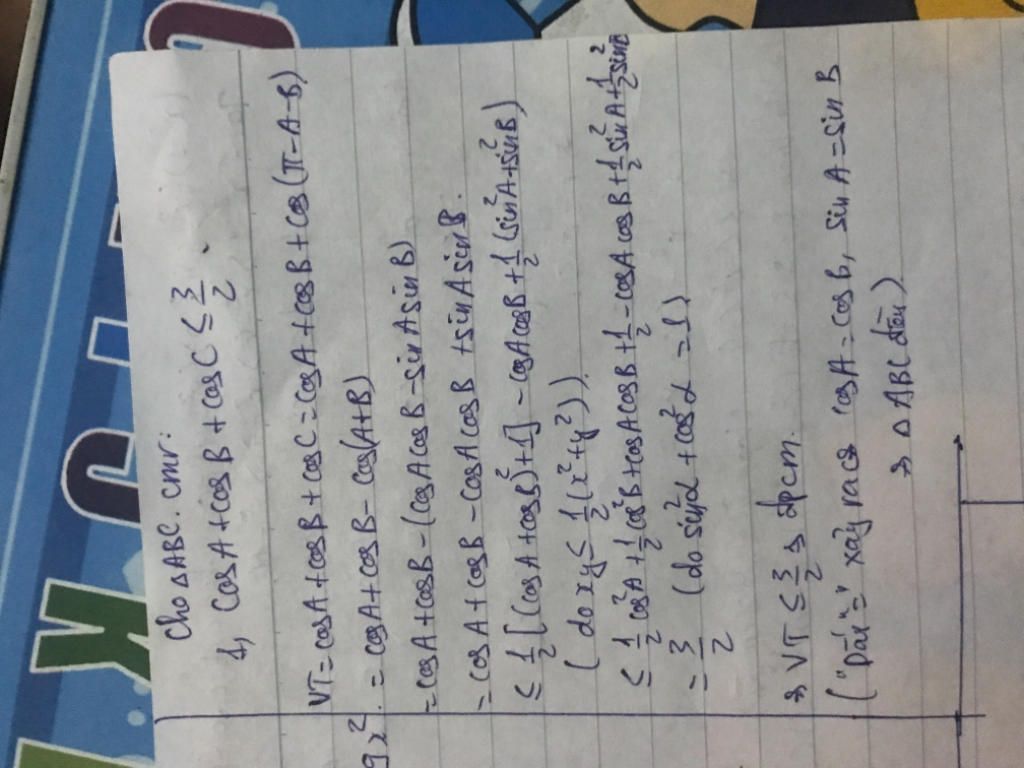 Cho △ABC. cmr:
1, cosA+cosB+cosC ≤ 3/2.
VT = cosA+cosB+cosC = cosA+cosB+cos(π-A-B)
9x².
= cosA+cosB-cos(A+B)
= cosA+cosB-(cosAcosB-sinAsinB)
= cosA+cosB-cosAcosB+sinAsinB.
≤ 1/2[(cosA+cosB)²+1]-cosAcosB+1/2(sin²A+sin²B)
(do xy ≤ 1/2(x²+y²)).
≤ 1/2cos²A+1/2cos²B+cosAcosB+1/2-cosAcosB+1/2sin²A+1/2sin²B
= 3/2 (do sin²α+cos²α=1)
→ VT ≤ 3/2 → đpcm.
(Dấu "=" xảy ra ⇔ cosA=cosB, sinA=sinB
→ △ABC đều)